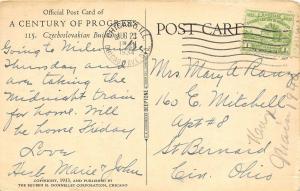 Official Post Card of
A CENTURY OF PROGRESS
115. Czechoslovakian
POST CARD
CHICAGO, ILL.
AUG 23
Going to
Thursday and
are taking the
Midnight train
for home. Will
be home Friday
Love
Marie & John
Mrs Mary A
160 E. Mitchell
Apt # 8
St Bernard
Cin. Ohio
COPYRIGHT, 1933, AND PUBLISHED BY
THE REUBEN H. DONNELLEY CORPORATION, CHICAGO